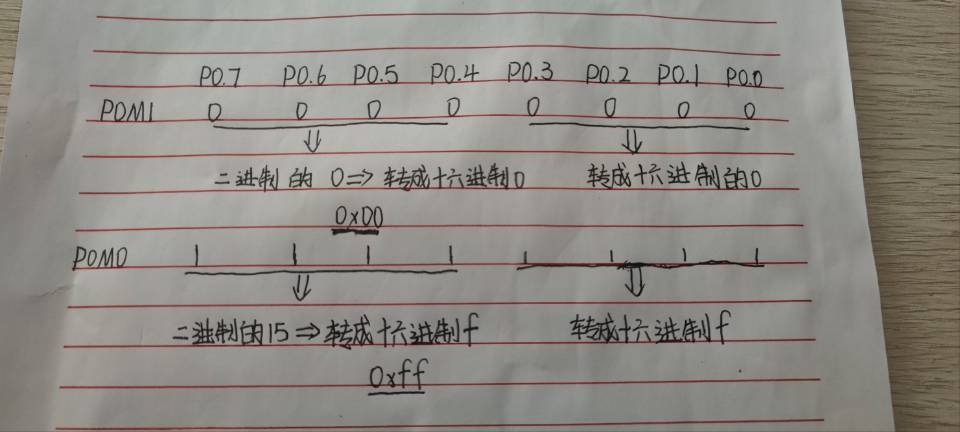 P0.7 P0.6 P0.5 P0.4 P0.3 P0.2 P0.1 P0.0
P0M1 0 0 0 0 0 0 0 0
⇓ ⇓
二进制的 0⇒转成十六进制0 转成十六进制的0
0x00
P0M0 1 1 1 1 1 1 1 1
⇓ ⇓
二进制的15⇒转成十六进制f 转成十六进制f
0xff